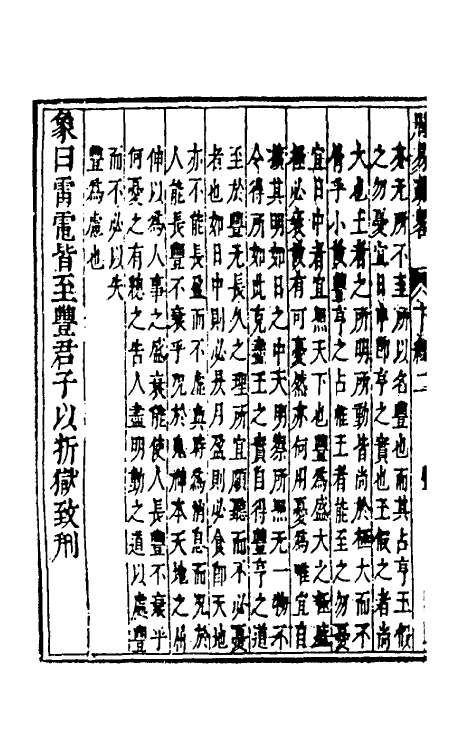 亦无所不至所以名豐也而其占亨王假
之勿憂宜日中即亨之實也王假之者尚
大也王者之所明所動皆尚於極大而不
脣乎小故豐亨之占唯王者能至之勿憂
宜日中者宜照天下也豐為盛大之極盛
極必衰故有可憂然亦何用憂為唯宜自
其明如日之中天明察所照无一物不
令得所如此克盡王之實自得豐亨之道
至於豐无長久之理所宜順聽而不必憂
者也如日中則必昃月盈則必食即天地
亦不能長盈而不虛與時為消息而况於
人能長豐不衰乎况於鬼神本天地之所
伸以為人事之盛衰能使人長豐不衰乎
何憂之有總之告人盡明動之道以處豐
而不必以失
豐為慮也
象曰雷電皆至豐君子以折獄致刑